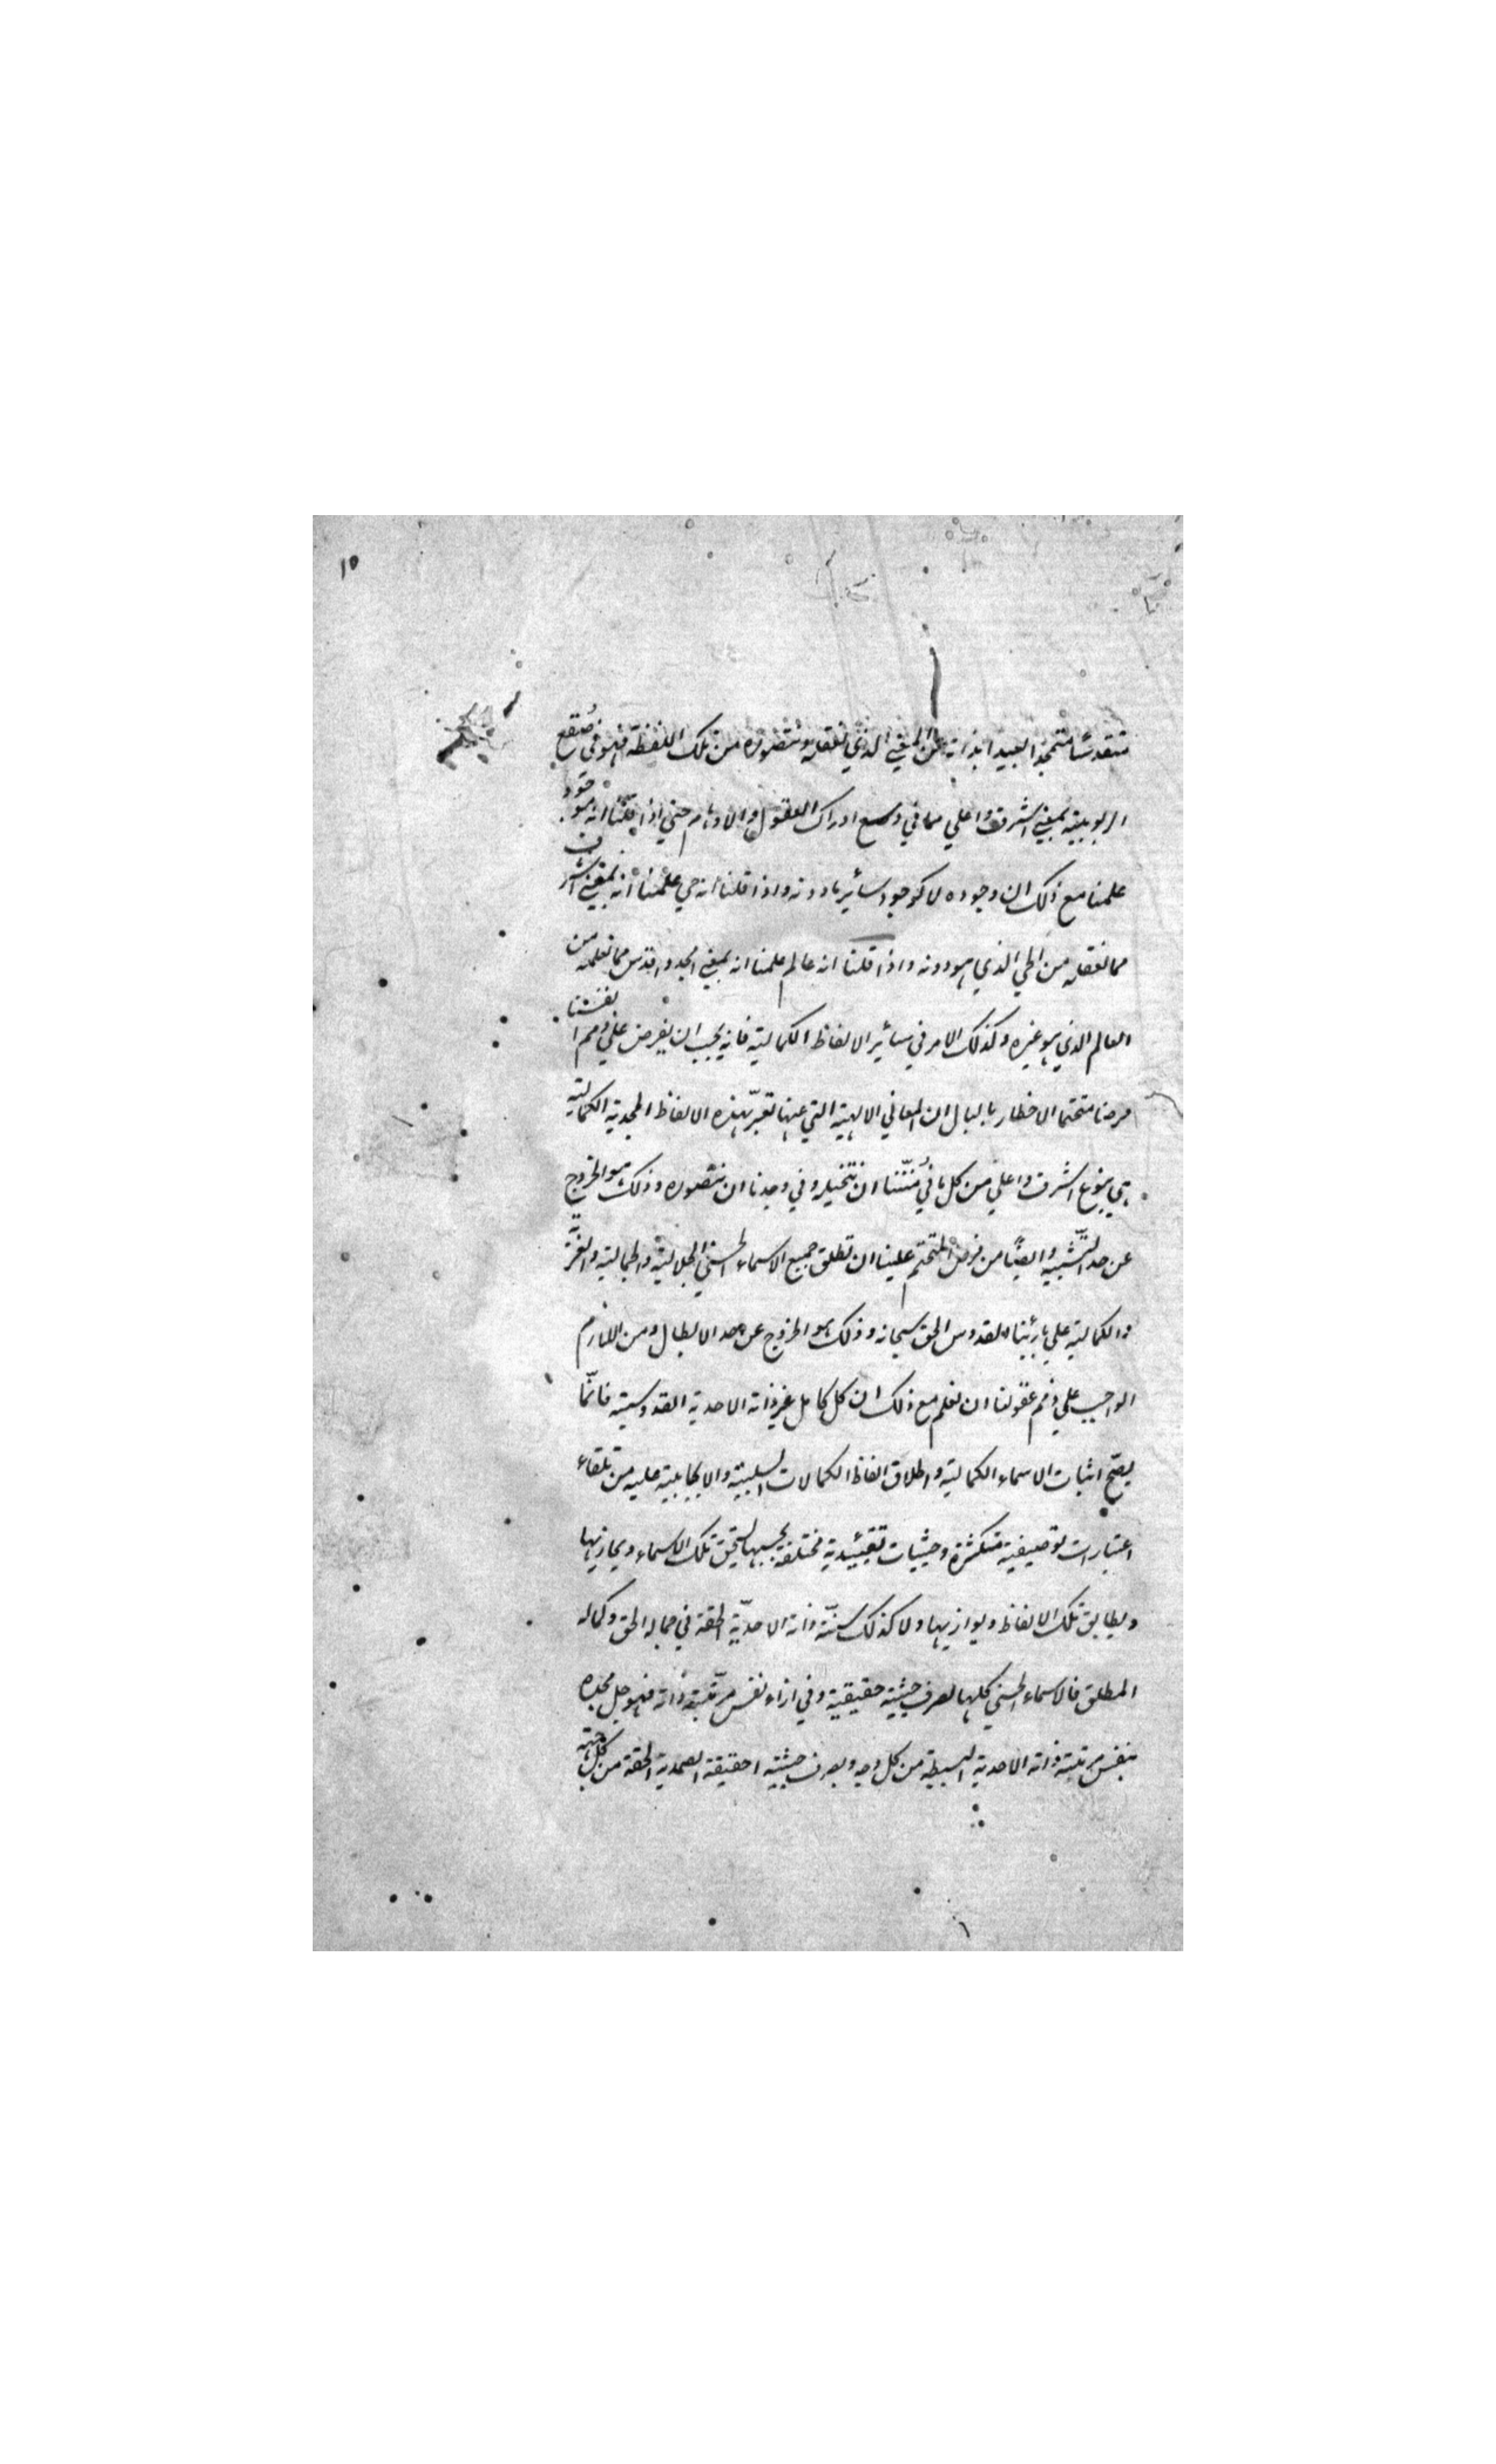 ١٥
متقدسًا متمجدا بعيدا بذاته عن المعنى الذي نعقله ونتصوره من تلك اللفظة فهو في صُقع
الربوبية بمعنى اشرف واعلي مما في وسع ادراك العقول والاوهام حتي اذا قلنا انه موجود
علمنا مع ذلك ان وجوده لا كوجود سائر ما دونه واذا قلنا انه حي علمنا انه بمعني اشرف
مما نعقله من الحي الذي هو دونه واذا قلنا انه عالم علمنا انه بمعني امجد واقدس مما نعلمه من
العالم الذي هو غيره وكذلك الامر في سائر الالفاظ الكمالية فانه يجب ان يفرض علي ذمم انفسنا
فرضا متحتما الاخطار بالبال ان المعاني الالهية التي عنها تعبّر بهذه الالفاظ المجدية الكمالية
هي بنوع اشرف واعلي من كل ما في مُنّتنا ان نتخيله وفي وجدنا ان نتصوره وذلك هو الخروج
عن حد التّشبيه وايضًا من فرض المتحتم علينا ان تطلق جميع الاسماء الحسني الجلالية والجمالية والعزّيّة
والكمالية علي بارئنا القدوس الحق سبحانه وذلك هو الخروج عن حد الابطال ومن اللازم
الواجب علي ذمم عقولنا ان نعلم مع ذلك ان كل كامل غير ذاته الاحدية القدوسية فانّما
يصّح اثبات الاسماء الكمالية واطلاق الفاظ الكمالات السلبية والايجابية عليه من تلقاء
اعتبارات توصيفية متكثرة وحيثيات تقييدية مختلفة بحسبها يستحق تلك الاسماء ويحازيها
ويطابق تلك الالفاظ ويوازيها ولا كذلك سنّة ذاته الاحديّة الحقة في جماله الحق وكماله
المطلق فالاسماء الحسني كلها لصرف حيثية حقيقية وفي ازاء نفس مرتبة ذاته فهو جل مجده
بنفس مرتبة ذاته الاحدية البسيطة من كل وجه وبصرف حيثية احقيقة الصمدية الحقة من كل جهة